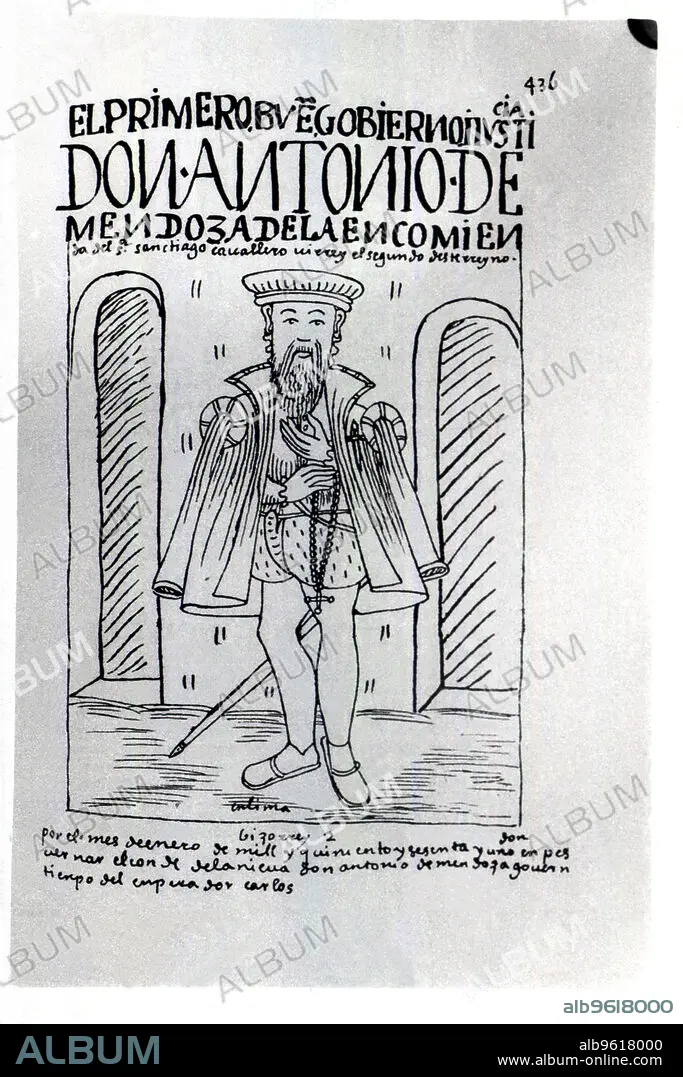 436
EL PRIMERO, BVĒ, GOBIERNO, I IVSTI
CIA
DON·ANTONIO·DE
MENDOZA DE LA ENCOMIEN
da del s.r sanctiago cauallero uirrey el segundo deste rreyno.
en lima
bizorrey 2
don
por el mes de enero de mill y quiniento y sesenta y uno enpes
uernar el con de de la nieua don antonio de mendoza a govern
tienpo del enperador carlos
ALBUM
alb9618000
ALBUM
alb9618000
www.album-online.com